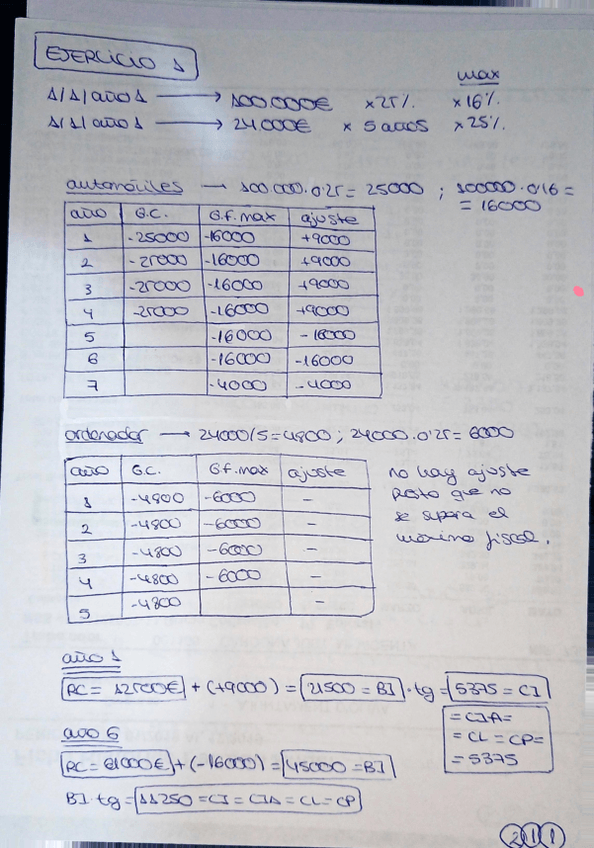 EJERCICIO 1
max
1/1/año 1 → 100.000€ x25% x16%
1/1/año 1 → 24.000€ x 5 años x25%
automóviles → 100.000·0'25= 25000 ; 100000·0'16=
= 16000
año G.C. G.f.max ajuste
1 -25000 -16000 +9000
2 -25000 -16000 +9000
3 -25000 -16000 +9000
4 -25000 -16000 +9000
5 -16000 -16000
6 -16000 -16000
7 -4000 -4000
ordenador → 24000/5=4800 ; 24000·0'25= 6000
año G.C. G.f.max ajuste
1 -4800 -6000 -
2 -4800 -6000 -
3 -4800 -6000 -
4 -4800 -6000 -
5 -4800 -
no hay ajuste
puesto que no
se supera el
máximo fiscal.
año 1
RC= 12500€ + (+9000) = 21500 = BI · tg = 5375 = CI
= CIA=
= CL = CP=
= 5375
año 6
RC= 61000€ + (-16000) = 45000 = BI
BI · tg = 11250 = CI = CIA = CL = CP
211